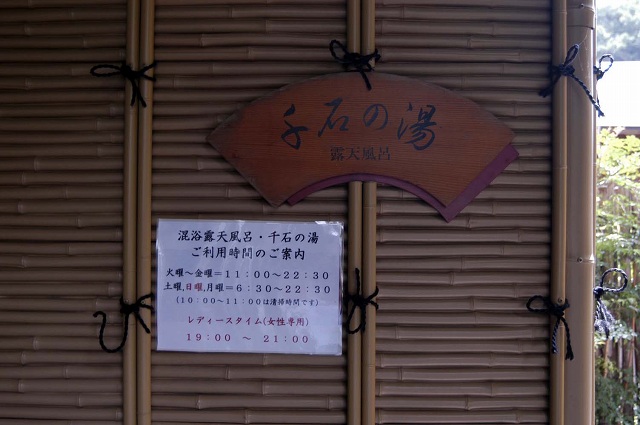 千石の湯
露天風呂
混浴露天風呂・千石の湯
ご利用時間のご案内
火曜～金曜＝11：00～22：30
土曜,日曜,月曜＝6：30～22：30
(10：00～11：00は清掃時間です)
レディースタイム(女性専用)
19：00　～　21：00